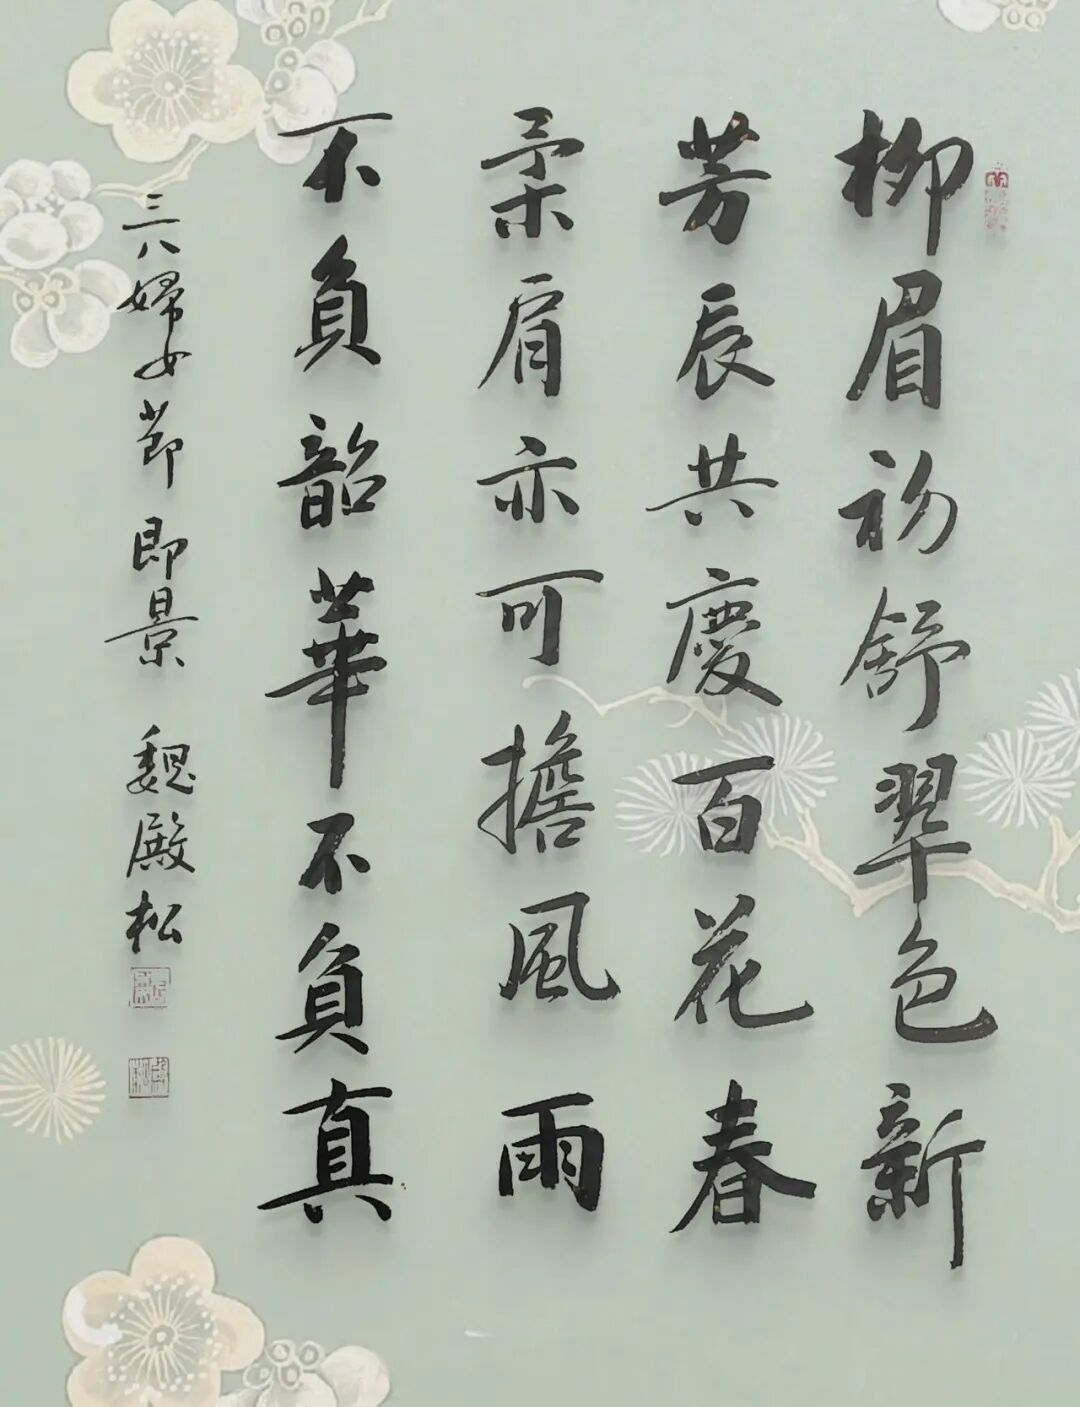 柳眉初舒翠色新
芳辰共慶百花春
柔肩亦可擔風雨
不負韶華不負真
三八婦女節即景 魏殿松